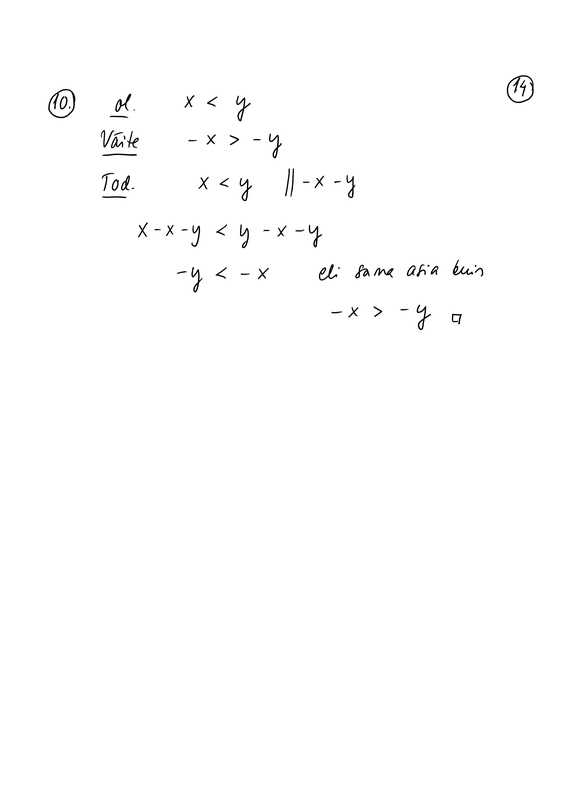 14.
10. ol. x < y
Väite -x > -y
Tod. x < y || -x -y
x-x-y < y -x-y
-y < -x eli sama asia kuin
-x > -y □